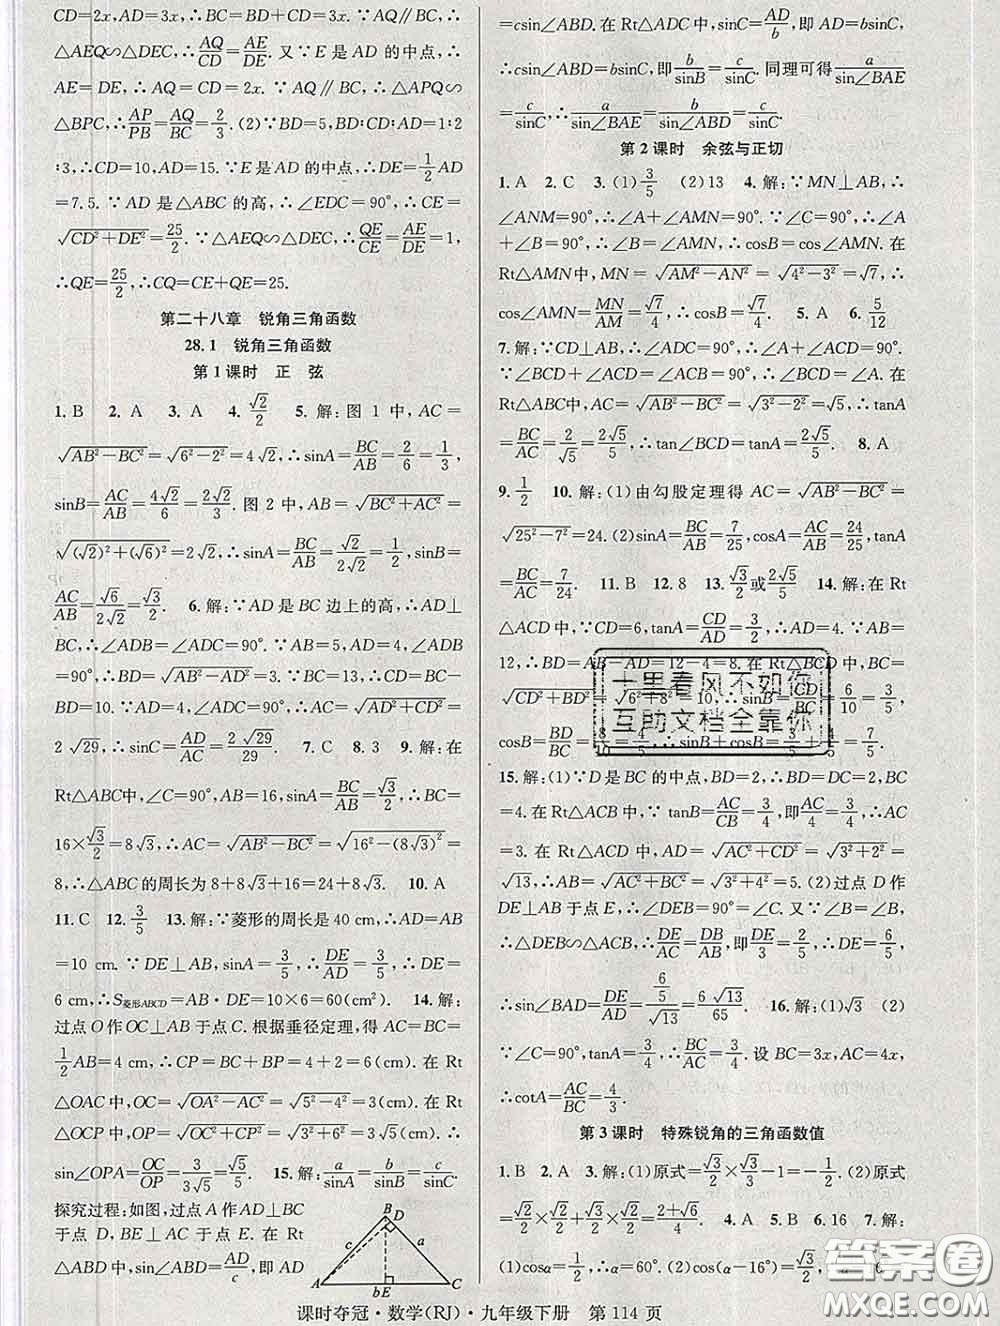 CD=2x,∴BC=BD+CD=3x. ∵AQ∥BC,∴
△AEQ∽△DEC,∴AQ/CD=AE/DE. 又∵E是AD的中点,∴
AE=DE,∴AQ=CD=2x. ∵AQ∥BC,∴△APQ∽
△BPC,∴AP/PB=AQ/BC=2/3. (2)∵BD=5,BD:CD=1:2
:3,∴CD=10,AD=15. ∵E是AD的中点,∴DE=1/2AD
=7.5. ∵AD是△ABC的高,∴∠EDC=90°,∴CE=
√(CD²+DE²)=25/2. ∵△AEQ∽△DEC,∴QE/CE=AE/DE=1,
∴QE=25/2,∴CQ=CE+QE=25.
第二十八章 锐角三角函数
28.1 锐角三角函数
第1课时 正 弦
1. B 2. A 3. A 4. √2/2 5. 解:图1中,AC=
√(AB²-BC²)=√(6²-2²)=4√2,∴sinA=BC/AB=2/6=1/3,
sinB=AC/AB=4√2/6=2√2/3. 图2中,AB=√(BC²+AC²)=
√((√2)²+(√6)²)=2√2,∴sinA=BC/AB=√2/2√2=1/2,sinB=
AC/AB=√6/2√2=√3/2. 6. 解:∵AD是BC边上的高,∴AD⊥
BC,∴∠ADB=∠ADC=90°. ∵AB=5,AD=4,∴BD
=√(AB²-AD²)=3. ∵BC=13,∴CD=BC-
BD=10. ∴AC=√(AD²+CD²)=√(4²+10²)=
2√29,∴sinC=AD/AC=2√29/29. 7. C 8. 3 9. 解:在
Rt△ABC中,∠C=90°,AB=16,sinA=√3/2,∴BC=
16×√3/2=8√3,∴AC=√(AB²-BC²)=√(16²-(8√3)²)=
8,∴△ABC的周长为8+8√3+16=24+8√3. 10. A
11. C 12. 3/5 13. 解:∵菱形的周长是40 cm,∴AD=AB
=10 cm. ∵DE⊥AB,sinA=3/5,∴DE/AD=3/5,∴DE=
6 cm,∴S菱形ABCD=AB·DE=10×6=60(cm). 14. 解:
过点O作OC⊥AB于点C. 根据垂径定理,得AC=BC=
1/2AB=4 cm,∴CP=BC+BP=4+2=6(cm). 在Rt
△OAC中,OC=√(OA²-AC²)=√(5²-4²)=3(cm). 在Rt
△OCP中,OP=√(OC²+CP²)=√(3²+6²)=3√5(cm). ∴
sin∠OPA=OC/OP=3/3√5=√5/5. 15. 解:a/sinA=b/sinB=c/sinC.
探究过程:如图,过点A作AD⊥BC
于点D,BE⊥AC于点E. 在Rt
△ABD中,sin∠ABD=AD/c,即AD
B D
c a
A bE C
=csin∠ABD. 在Rt△ADC中,sinC=AD/b,即AD=bsinC,
∴csin∠ABD=bsinC,即b/sinB=c/sinC. 同理可得a/sin∠BAE
=c/sinC. ∴a/sin∠BAE=b/sin∠ABD=c/sinC.
第2课时 余弦与正切
1. A 2. C 3. (1)3/5 (2)13 4. 解:∵MN⊥AB,∴
∠ANM=90°,∴∠A+∠AMN=90°. ∵∠C=90°,∴∠A
+∠B=90°,∴∠B=∠AMN,∴cosB=cos∠AMN. 在
Rt△AMN中,MN=√(AM²-AN²)=√(4²-3²)=√7,∴
cos∠AMN=MN/AM=√7/4,∴cosB=√7/4. 5. A 6. 5/12
7. 解:∵CD⊥AB,∴∠ADC=90°,∴∠A+∠ACD=90°.
∵∠BCD+∠ACD=∠ACB=90°,∴∠BCD=∠A. 在
Rt△ABC中,AC=√(AB²-BC²)=√(3²-2²)=√5,∴tanA
=BC/AC=2/√5=2√5/5,∴tan∠BCD=tanA=2√5/5. 8. A
9. 1/2 10. 解:(1)由勾股定理得AC=√(AB²-BC²)=
√(25²-7²)=24. (2)sinA=BC/AB=7/25,cosA=AC/AB=24/25,
tanA=BC/AC=7/24. 11. B 12. 8 13. √3/2或2√5/5 14. 解:在Rt
△ACD中,∵CD=6,tanA=CD/AD=3/2,∴AD=4. ∵AB=
12,∴BD=AB-AD=12-4=8. 在Rt△BCD中,BC=
√(CD²+BD²)=√(6²+8²)=10,∴sinB=CD/BC=6/10=3/5,
cosB=BD/BC=8/10=4/5,∴sinB+cosB=3/5+4/5=7/5.
十里春风不如你
互助文档全靠你
15. 解:(1)∵D是BC的中点,BD=2,∴BD=DC=2,BC
=4. 在Rt△ACB中,∵tanB=AC/CB=3/4,即AC/4=3/4,∴AC
=3. 在Rt△ACD中,AD=√(AC²+CD²)=√(3²+2²)=
√13,∴AB=√(AC²+BC²)=√(3²+4²)=5. (2)过点D作
DE⊥AB于点E,∴∠DEB=90°=∠C. 又∵∠B=∠B,
∴△DEB∽△ACB,∴DE/AC=DB/AB,即DE/3=2/5,∴DE=6/5,
∴sin∠BAD=DE/AD=(6/5)/√13=6√13/65. 16. (1)√3 (2)
∵∠C=90°,tanA=3/4,∴BC/AC=3/4. 设BC=3x,AC=4x,
∴cotA=AC/BC=4/3.
第3课时 特殊锐角的三角函数值
1. B 2. A 3. 解:(1)原式=√3/2×√3-1=1/2. (2)原式
=√2/2×√2/2+√2/2×√3/2=2/4+√6/4=(2+√6)/4. 4. A 5. B 6. 16 7. 解:
(1)cosα=1/2,∴α=60°. (2)cos(α-16°)=√3/2,∴
课时夺冠·数学(RJ)·九年级下册 第114页
答案圈
MXQE.COM